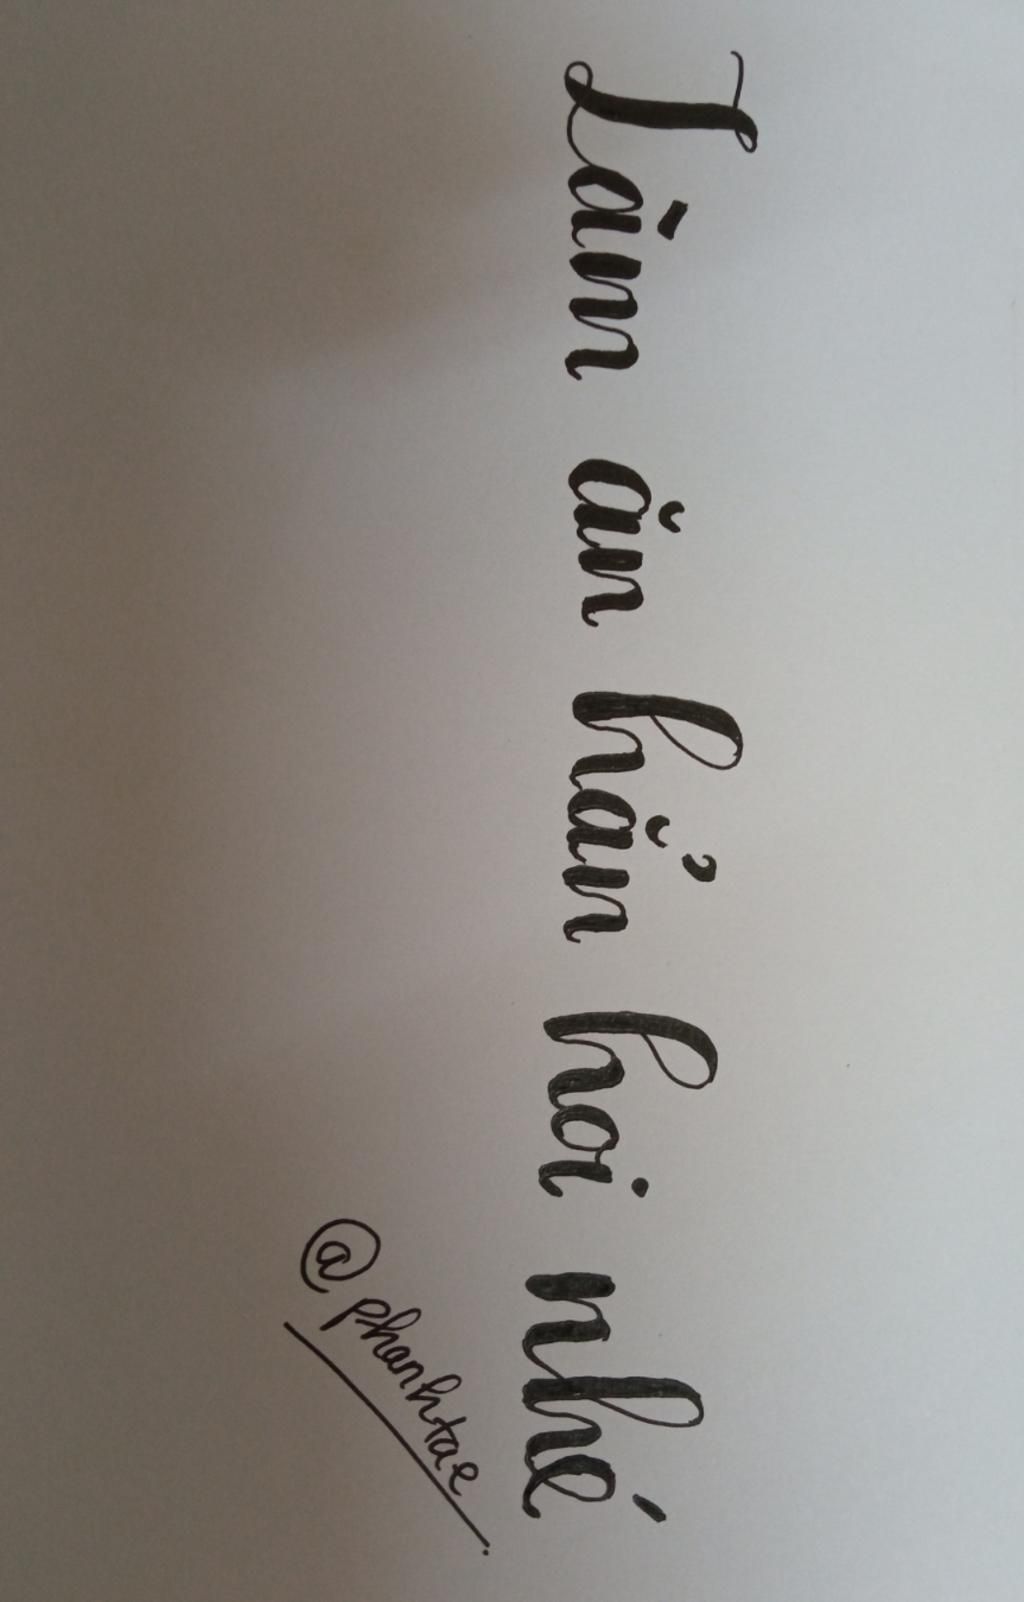 Làm ăn hẳn hoi nhé
@phanhtae